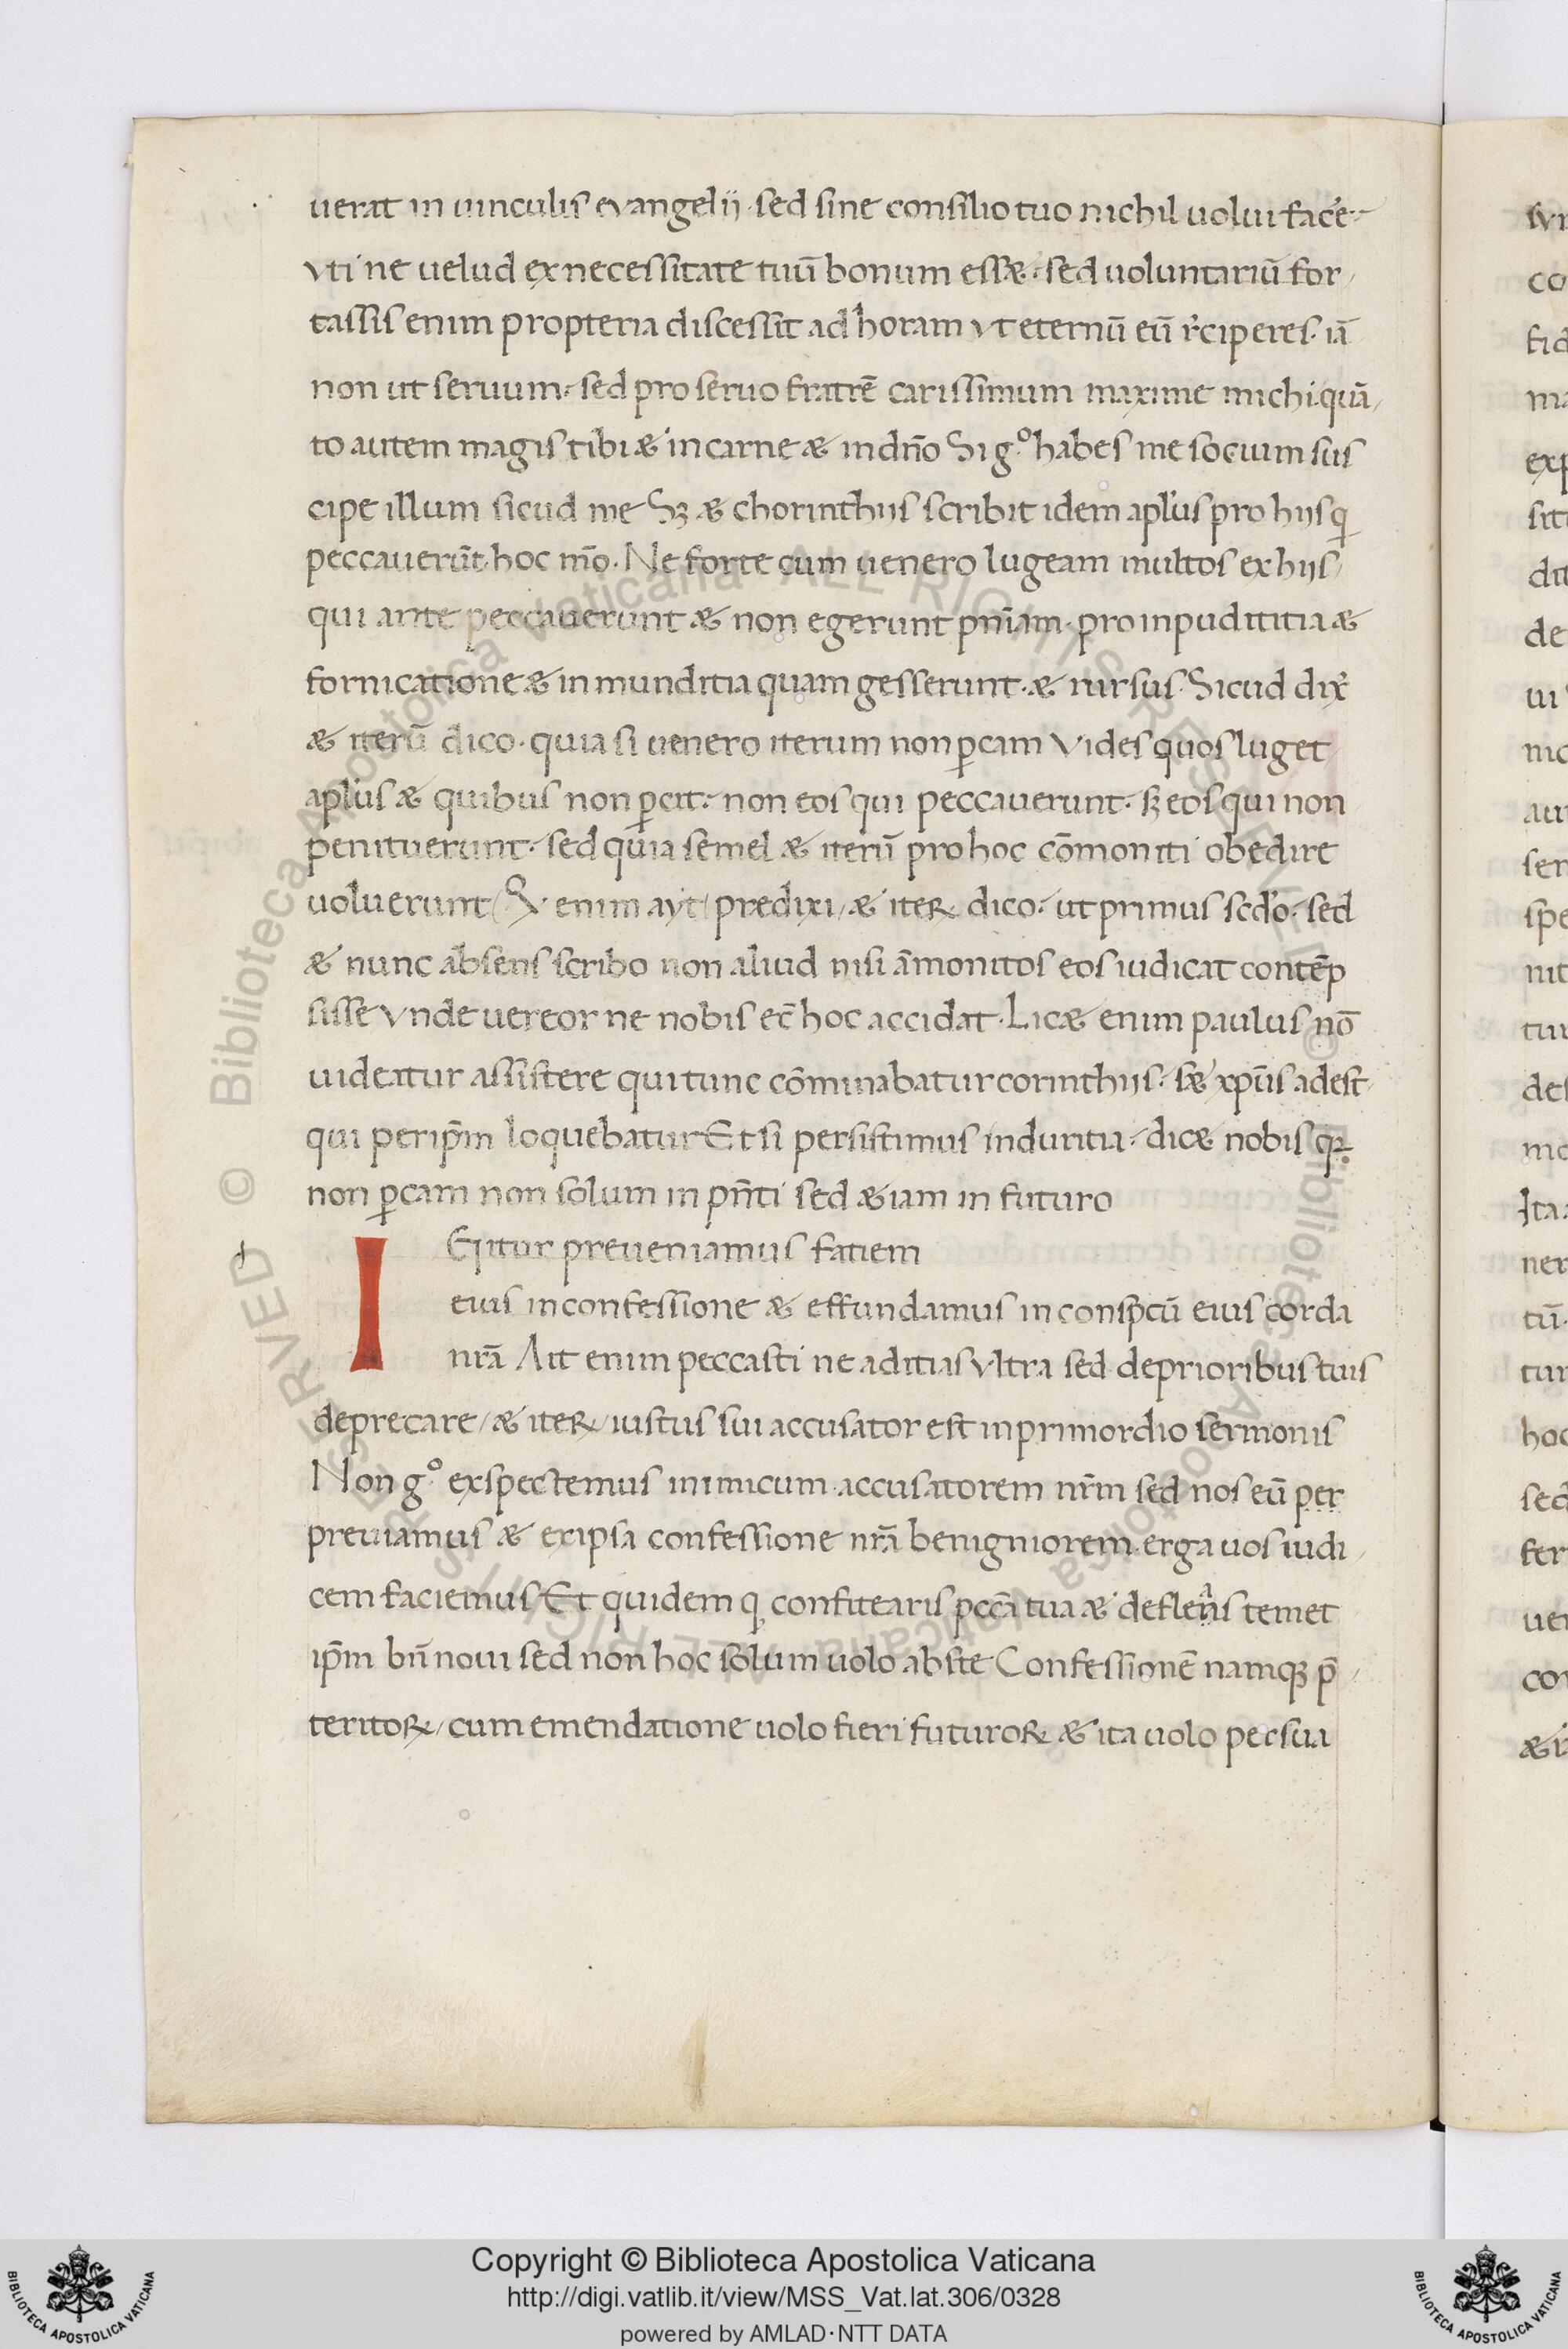 uerat in uinculis evangelij · sed sine consilio tuo nichil uolui facẻ·
vti ne uelud ex necessitate tuū bonum essæ · sed uoluntariū for
tassis enim propteria discessit ad horam vt eternū eū r̉ciperes · iā
non ut seruum · sed pro seruo fratrē carissimum maxime michi quā
to autem magis tibi & in carne & in dn̄o Si gº habes me socium sus
cipe illum sicud me Sꝫ & chorinthijs scribit idem apl'us pro hijs q
peccauerūt hoc mō · Ne forte cum uenero lugeam multos ex hijs
qui ante peccauerunt & non egerunt pn̄iam · pro inpudititia &
fornicatione & inmunditia quam gesserunt · & rursus · Sicud dix̉
& iterū dico · quia si uenero iterum non ꝑcam Vides quos luget
apl'us & quibus non ꝑcit · non eos qui peccauerunt · sꝫ eos qui non
penituerunt · sed quia semel & iterū pro hoc cōmoniti obedire
uoluerunt enim ayt predixi / & iteꝝ dico · ut primus scd'o · sed
& nunc absens scribo non aliud nisi āmonitos eos iudicat contēp
sisse vnde uereor ne nobis ec̄ hoc accidat · Licæ enim paulus nō
uideatur assistere qui tunc cōminabatur corinthijs · sæ xp̄us adest
qui per ip̄m loquebatur Et si persistimus in duritia · dicæ nobis qꝫ
non ꝑcam non solum in pn̄ti sed &iam in futuro
I Eijtur preueniamus fatiem
eius in confessione & effundamus in consp̄cū eius corda
nr̄a Ait enim peccasti ne aditias vltra sed deprioribus tuis
deprecare / & iteꝝ / iustus sui accusator est in primordio sermonis
Non gº exspectemus inimicum accusatorem nr̄m sed nos eū per
preuiamus & ex ipsa confessione nr̄a benigniorem erga uos iudi
cem faciemus Et quidem q confitearis pcc̄a tua & defleãris temet
ip̄m bn̄ noui sed non hoc solum uolo abste Confessionē namqꝫ p̄
teritoꝝ / cum emendatione uolo fieri futuroꝝ & ita uolo persua
svn
co
fid
ma
exp
sit
dit
de
ui
nic
aut
ser
spe
nit
tur
des
mo
Ita
ner
tū
tur
hoc
sed
fer
uer
con
Copyright © Biblioteca Apostolica Vaticana
http://digi.vatlib.it/view/MSS_Vat.lat.306/0328
powered by AMLAD·NTT DATA
BIBLIOTECA APOSTOLICA VATICANA
BIBLIOTECA APOSTOLICA VATICANA
© Biblioteca Apostolica Vaticana ALL RIGHTS RESERVED
© Biblioteca Apostolica Vaticana ALL RIGHTS RESERVED